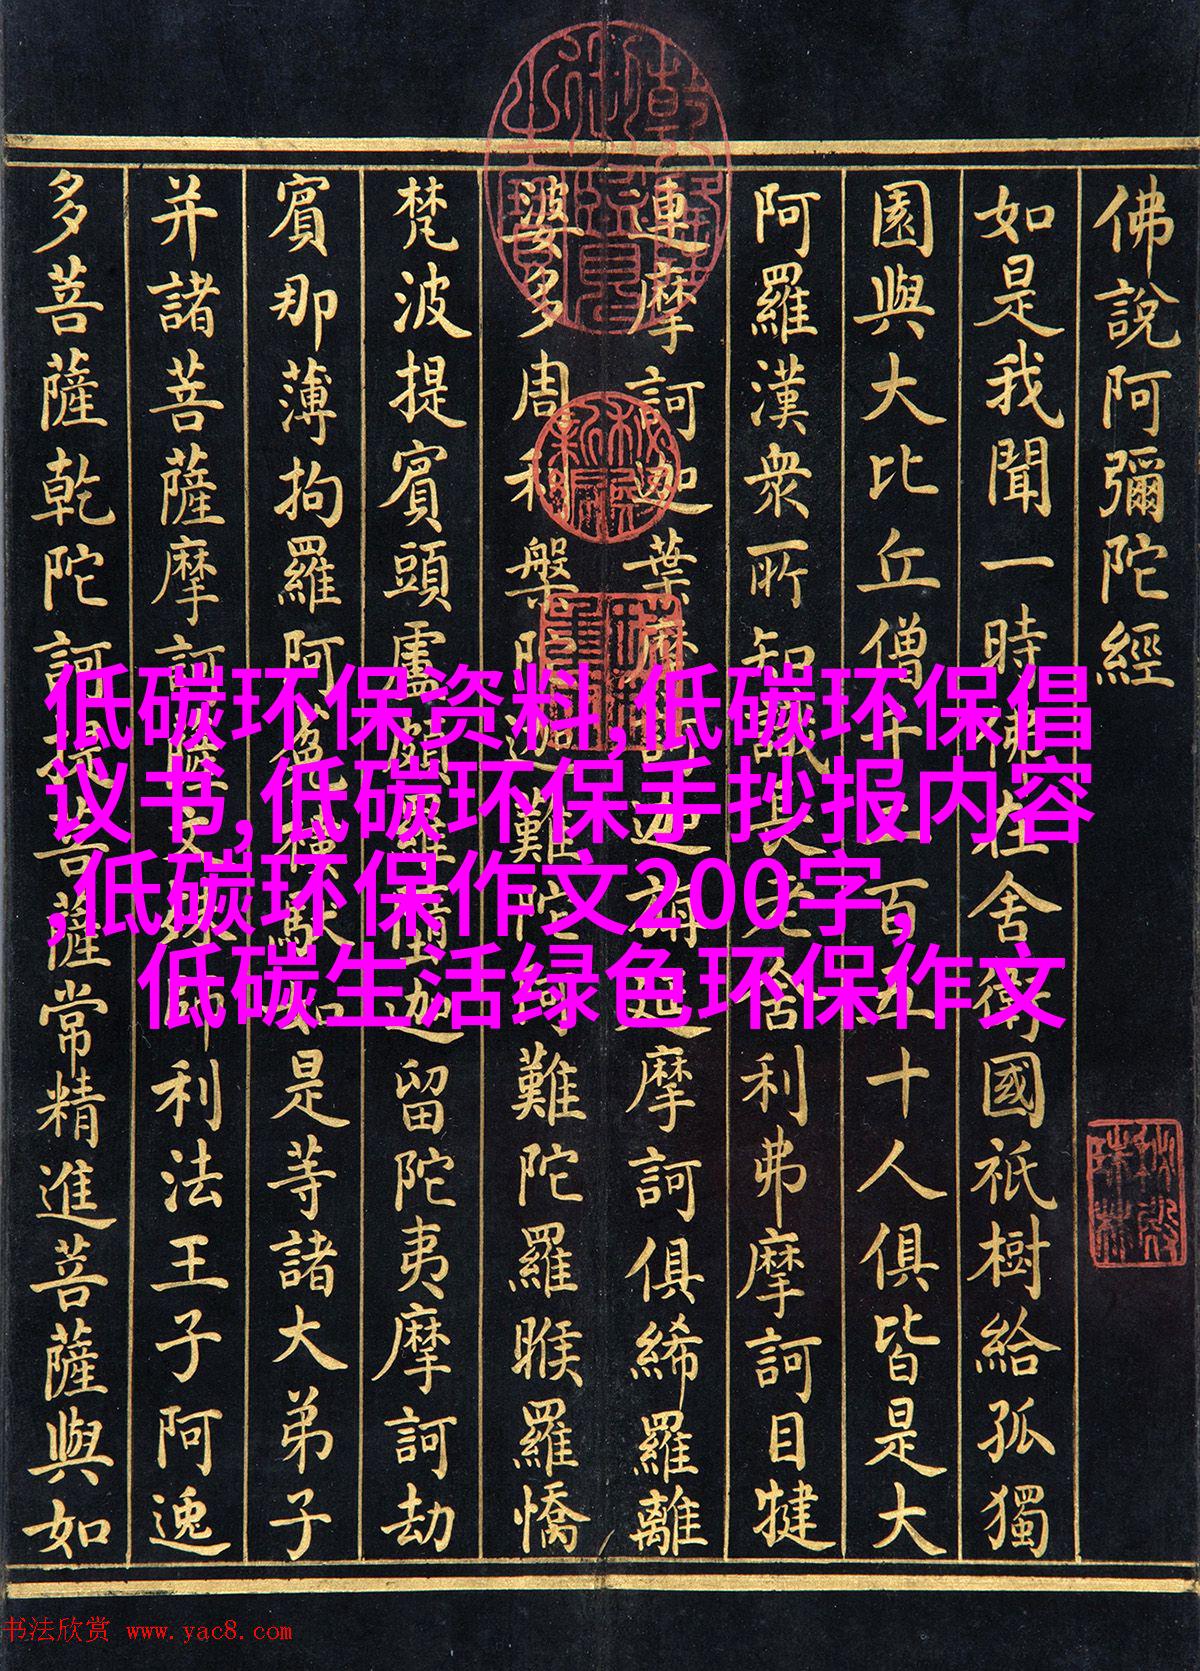 佛說阿彌陀經
如是我聞一時佛在舍衛國祇樹給孤獨
園與大比丘僧千二百五十人俱皆是大
阿羅漢衆所知識長老舍利弗摩訶目犍
連摩訶迦葉摩訶迦旃延摩訶俱絺羅離
婆多周利槃陀迦難陀阿難陀羅睺羅憍
梵波提賓頭盧頗羅墮迦留陀夷摩訶劫
賓那薄拘羅阿㝹樓馱如是等諸大弟子
并諸菩薩摩訶薩文殊師利法王子阿逸
多菩薩乾陀訶提菩薩常精進菩薩與如
低碳环保资料,低碳环保倡
议书,低碳环保手抄报内容
,低碳环保作文200字,
低碳生活绿色环保作文
书法欣赏 www.yac8.com